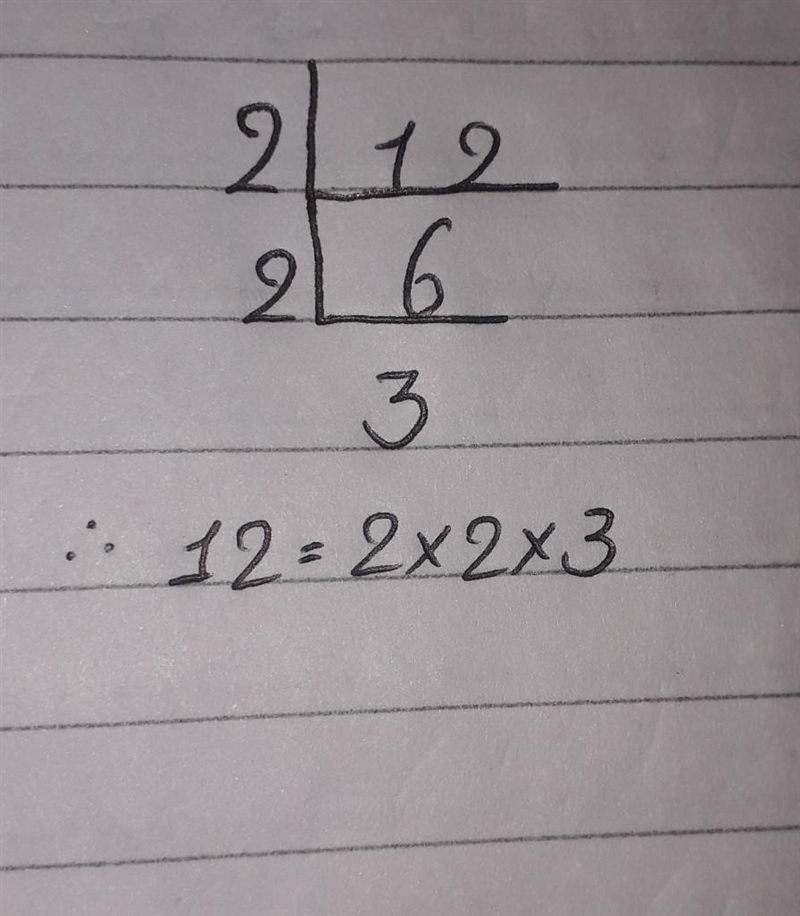 2 12
2 6
3
∴ 12 = 2×2×3